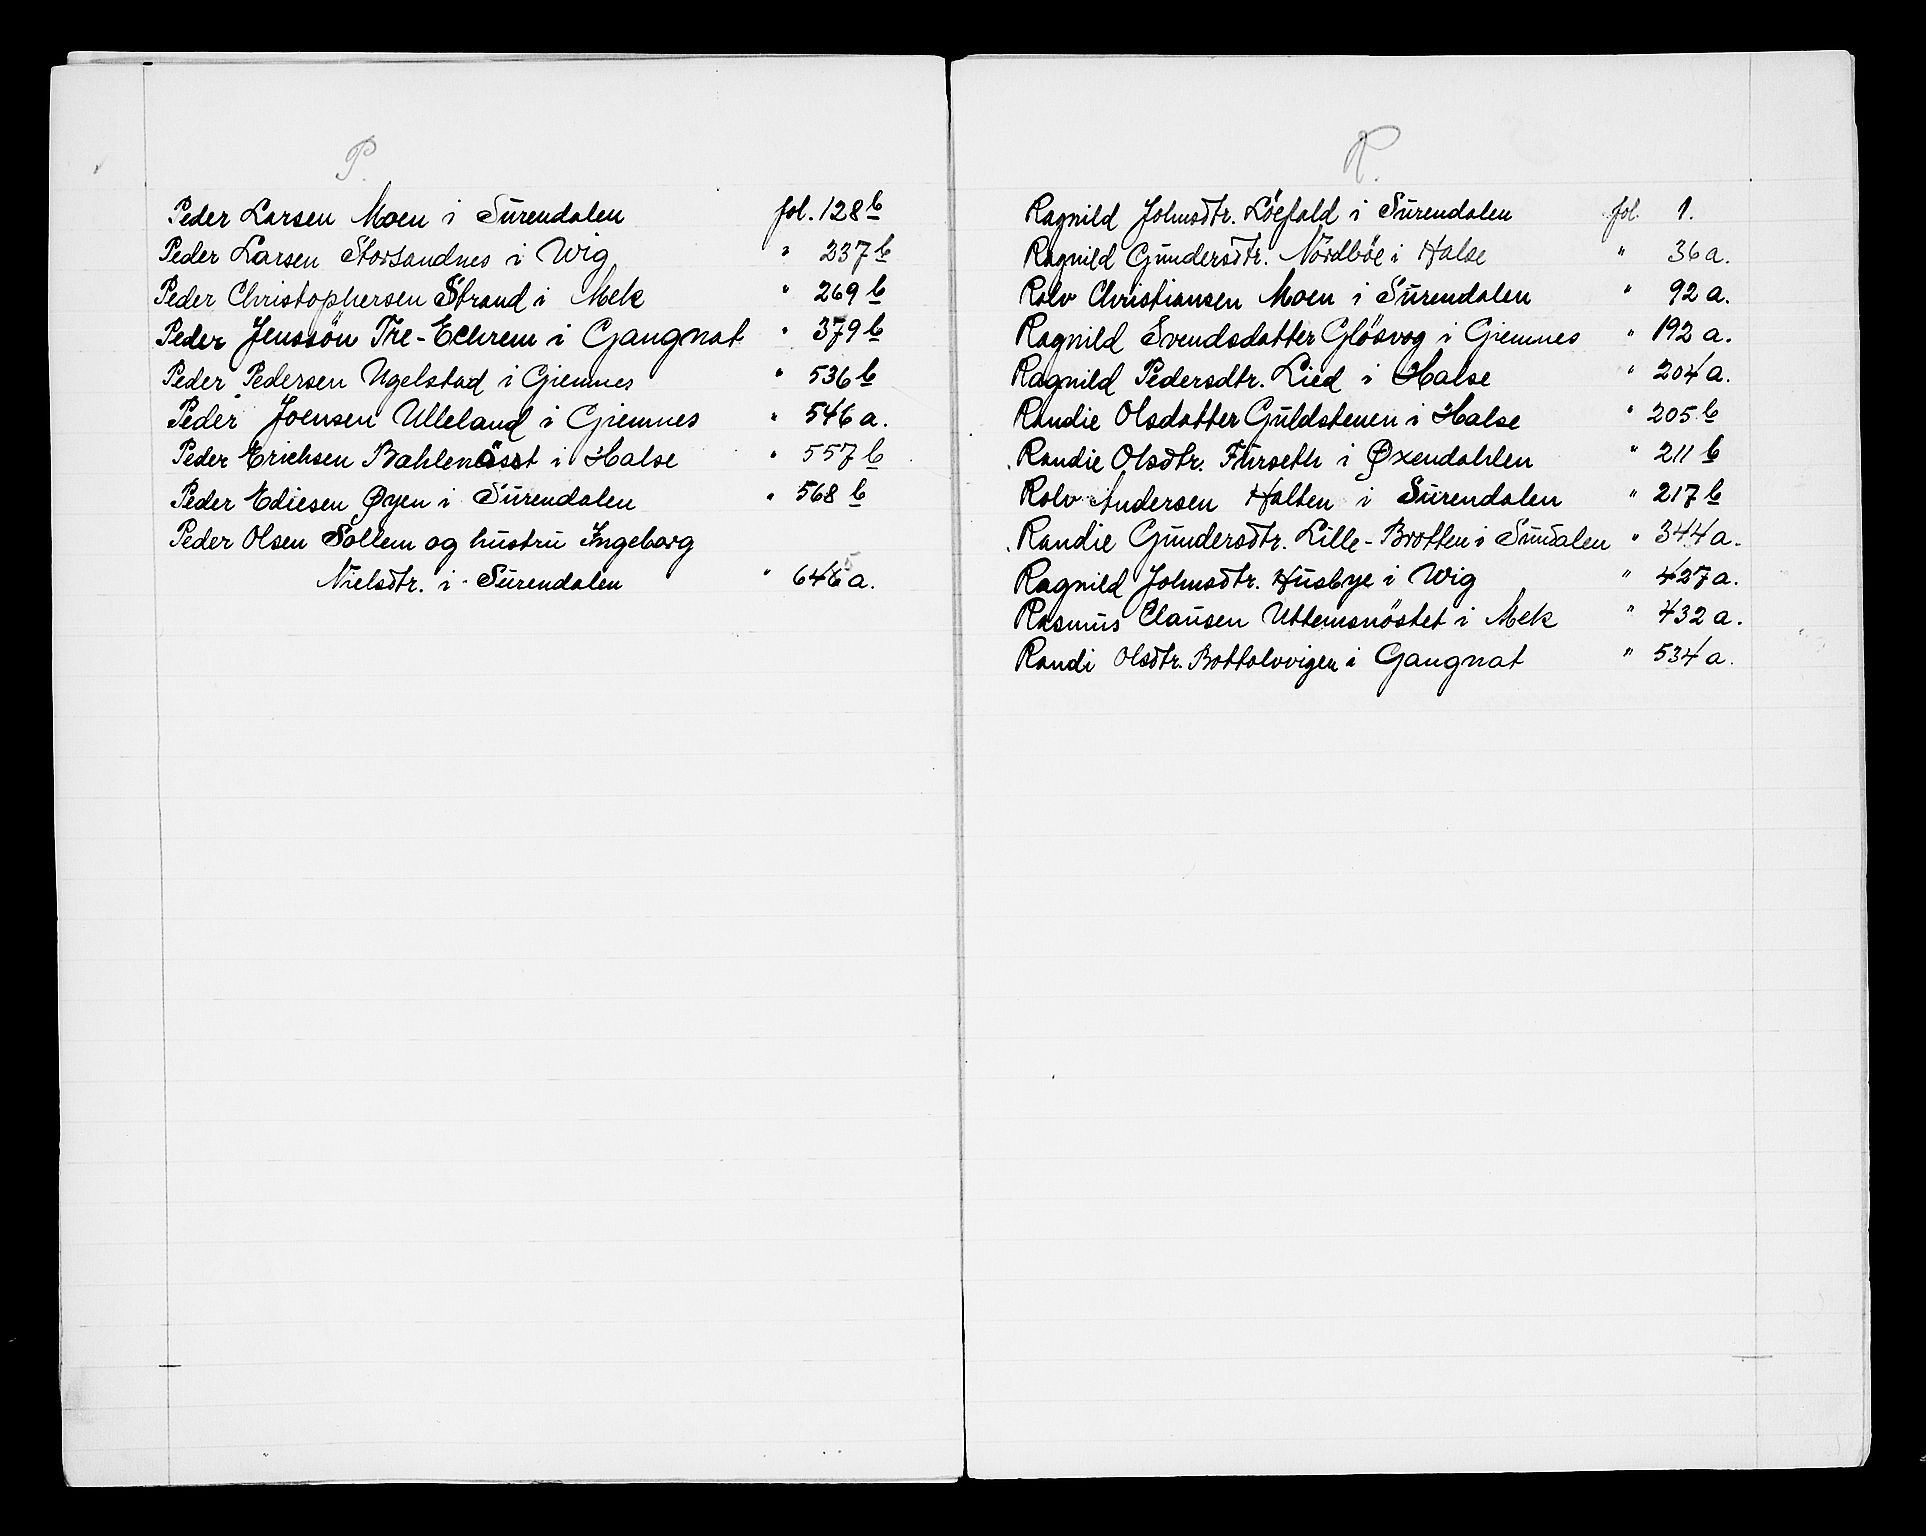 P.
Peder Larsen Moen i Surendalen fol. 128 b
Peder Larsen Storsandnes i Wig " 237 b
Peder Christophersen Strand i Mek " 269 b
Peder Jenssön Tre-Echrem i Gangnat " 379 b
Peder Pedersen Ugelstad i Giemnes " 536 b
Peder Joensen Ulleland i Giemnes " 546 a.
Peder Erichsen Bahlenösst i Halse " 557 b
Peder Ediesen Øyen i Surendalen " 568 b
Peder Olsen Sollem og hustru Ingeborg
Nielsdtr. i Surendalen " 646 a.
R.
Ragnild Johnsdtr. Löefald i Surendalen fol. 1.
Ragnild Gundersdtr. Nordböe i Halse " 36 a.
Rolv Christiansen Moen i Surendalen " 92 a.
Ragnild Svendsdatter Glösvog i Giemnes " 192 a.
Ragnild Pedersdtr. Lied i Halse " 204 a.
Randie Olsdatter Guldstenen i Halse " 205 b
Randie Olsdtr. Furseth i Øxendahlen " 211 b
Rolv Andersen Halten i Surendalen " 217 b
Randie Gundersdtr. Lille-Brotten i Sundalen " 344 a.
Ragnild Johnsdtr. Husbye i Wig " 427 a.
Rasmus Clausen Uttemsnöstet i Mek " 432 a.
Randi Olsdtr. Bottolvvigen i Gangnat " 534 a.